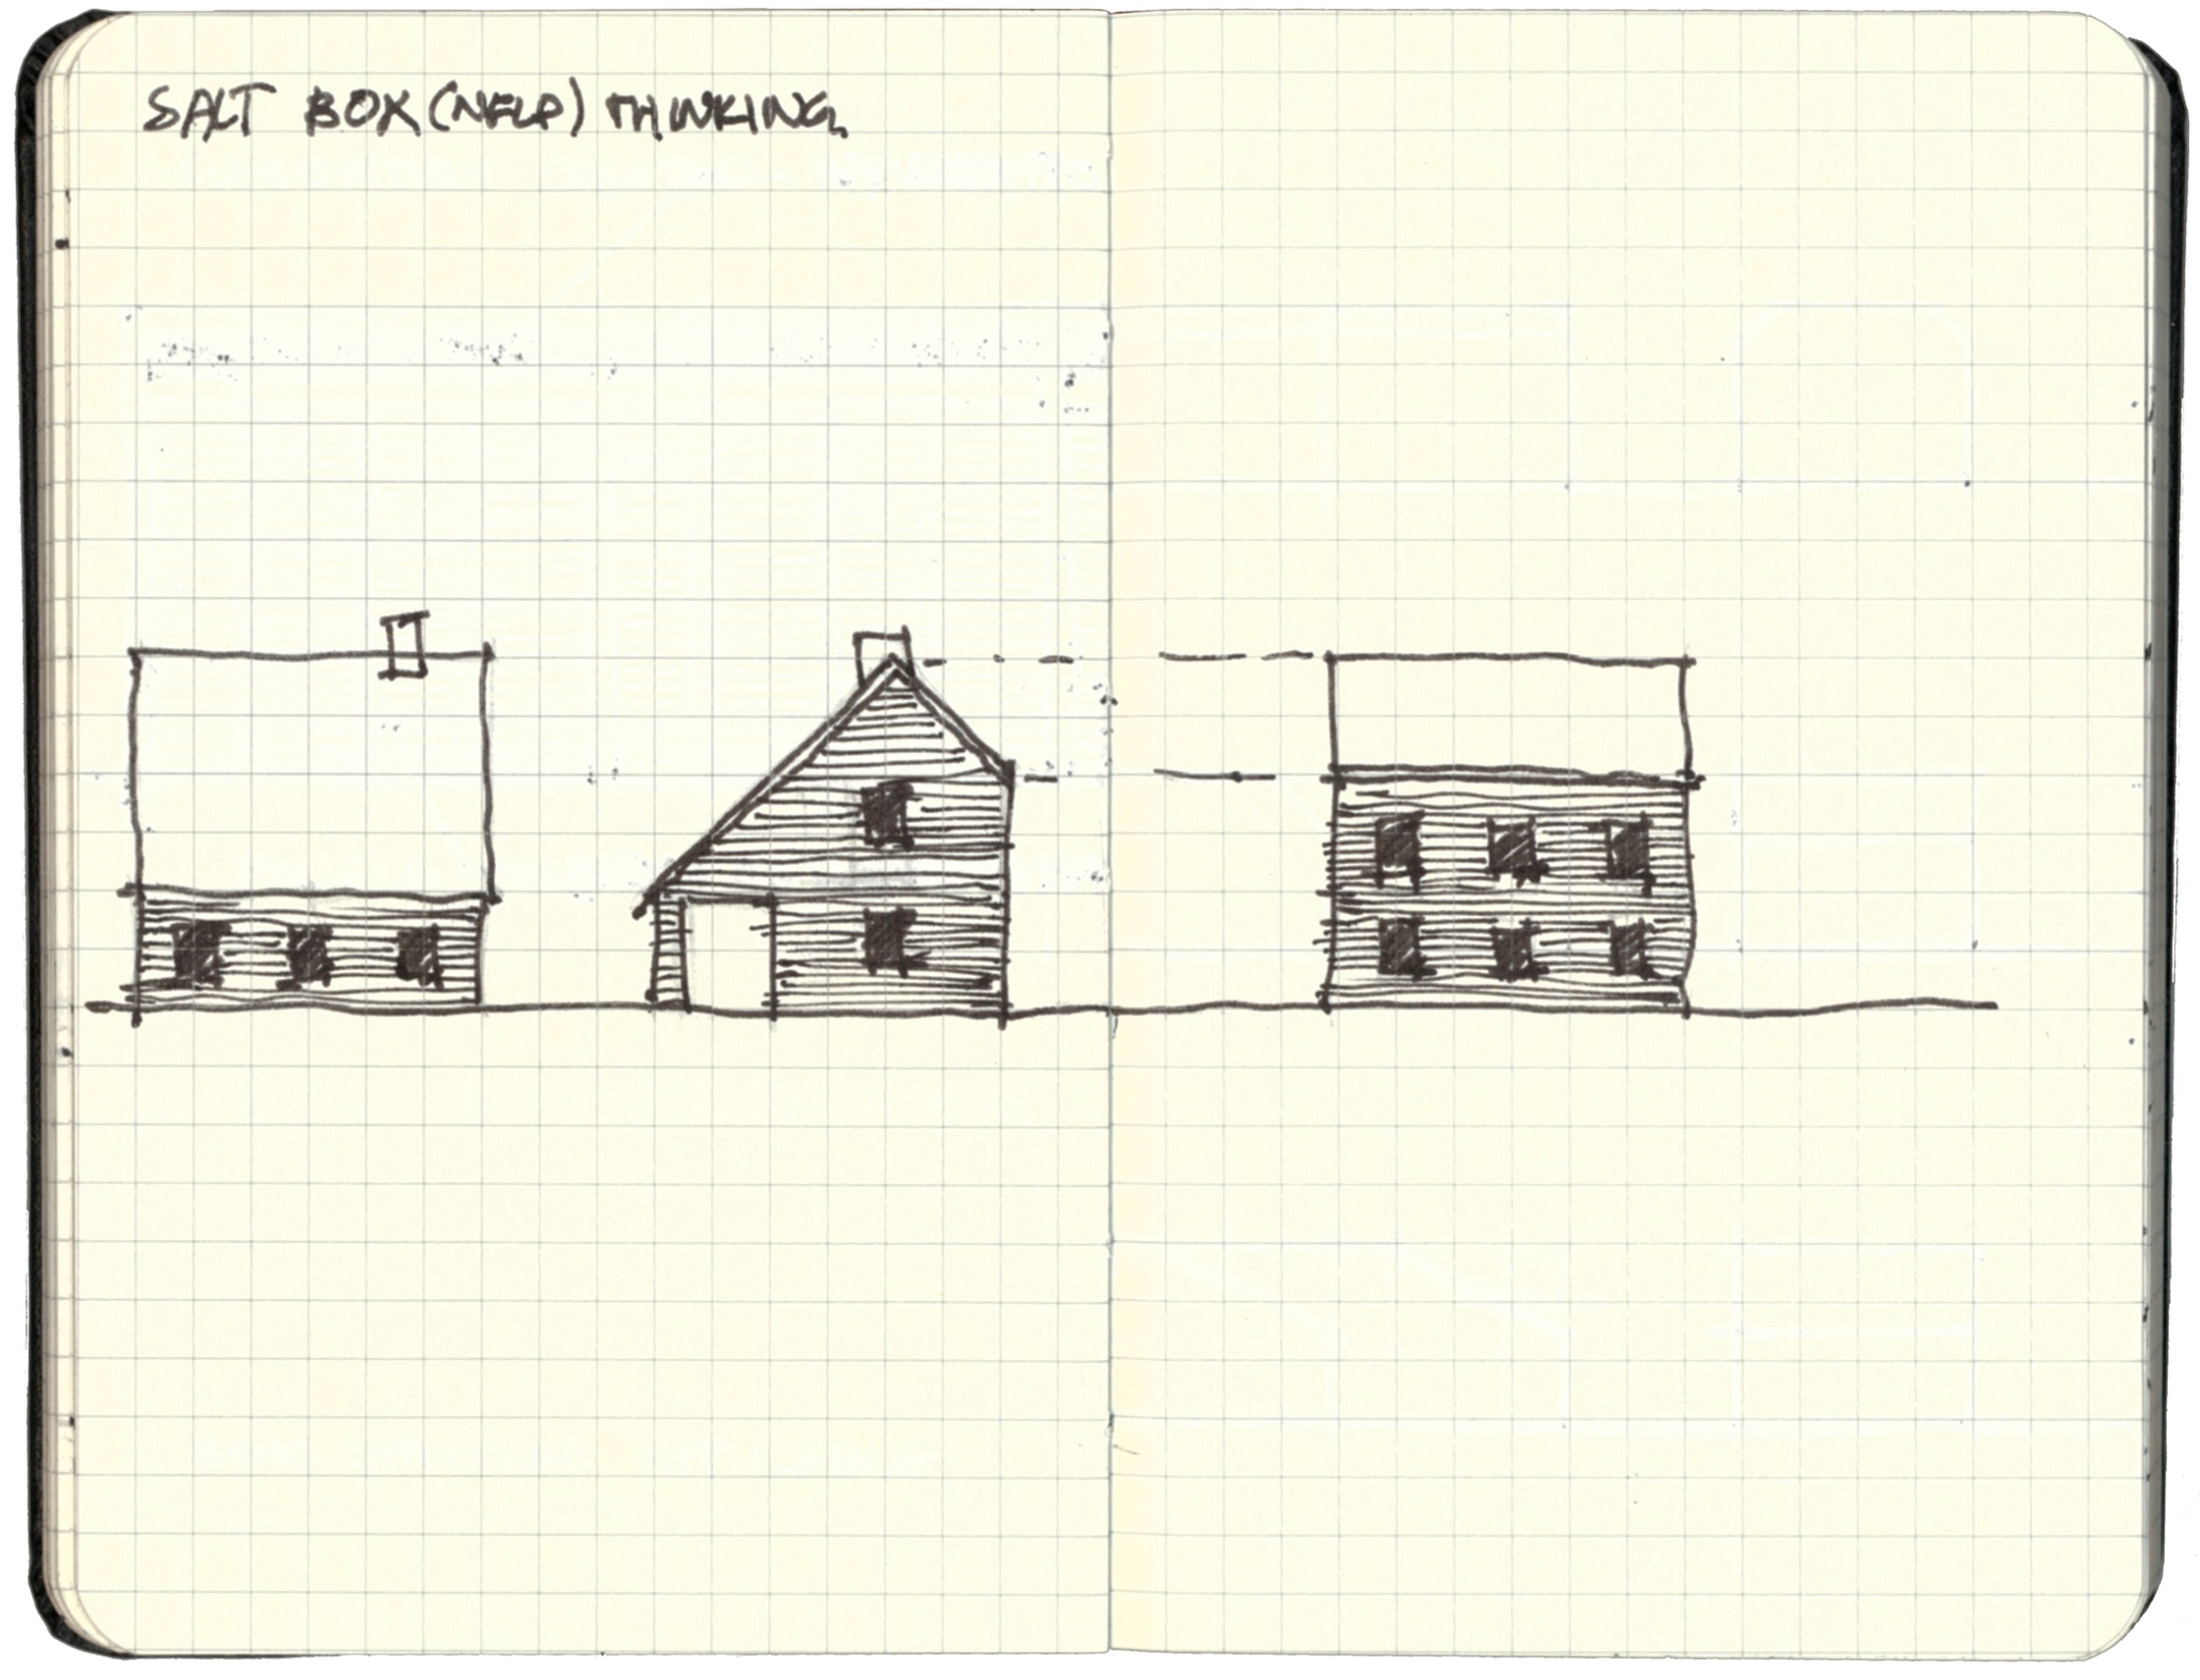 SALT BOX (NFLD) THINKING